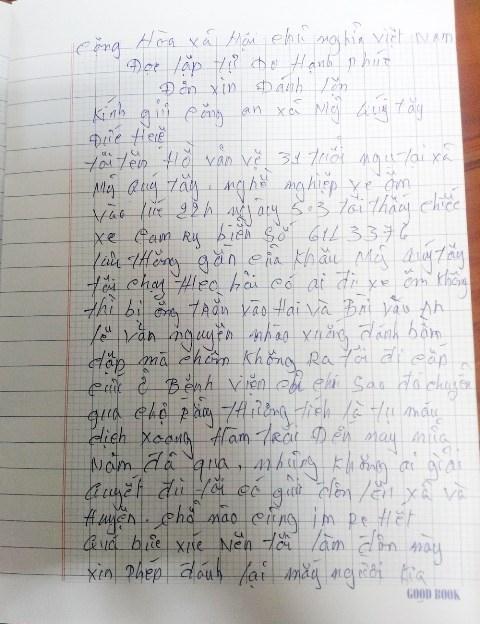 cộng Hòa xá Hội chủ nghĩa việt Nam
Đọc lặp tự Do Hạnh phúc
Đơn xin Đánh lộn
Kính gửi công an xã Mỹ Quý tây
Đức Huệ
tôi tên Hồ văn vẽ 31 tuổi ngụ tại xã
Mỹ Quý tây. nghề nghiệp xe ôm
vào lúc 22h ngày 5.3 tôi thấy chiếc
xe cam ry biển số 61L 3376
lưu thông gần cửa khẩu Mỹ Quý tây
tôi chạy theo hỏi có ai đi xe ôm không
thì bị ông trần vào Hai và Bùi văn
lê văn nguyên nhào xuống đánh bầm
dập mà chôm không Ra tôi đi cấp
cứu ở Bệnh viện chi Sao đó chuyển
qua chợ Rẫy thương tích là tụ máu
dịch xoang Hàm trái Đến nay nữa
Năm đã qua, nhưng không ai giải
Quyết dù tôi có gửi đơn lên xã và
Huyện. chỗ nào cũng im Re Hết
Quá bức xúc Nên tôi làm đơn này
xin phép đánh lại mấy người kia
GOOD BOOK